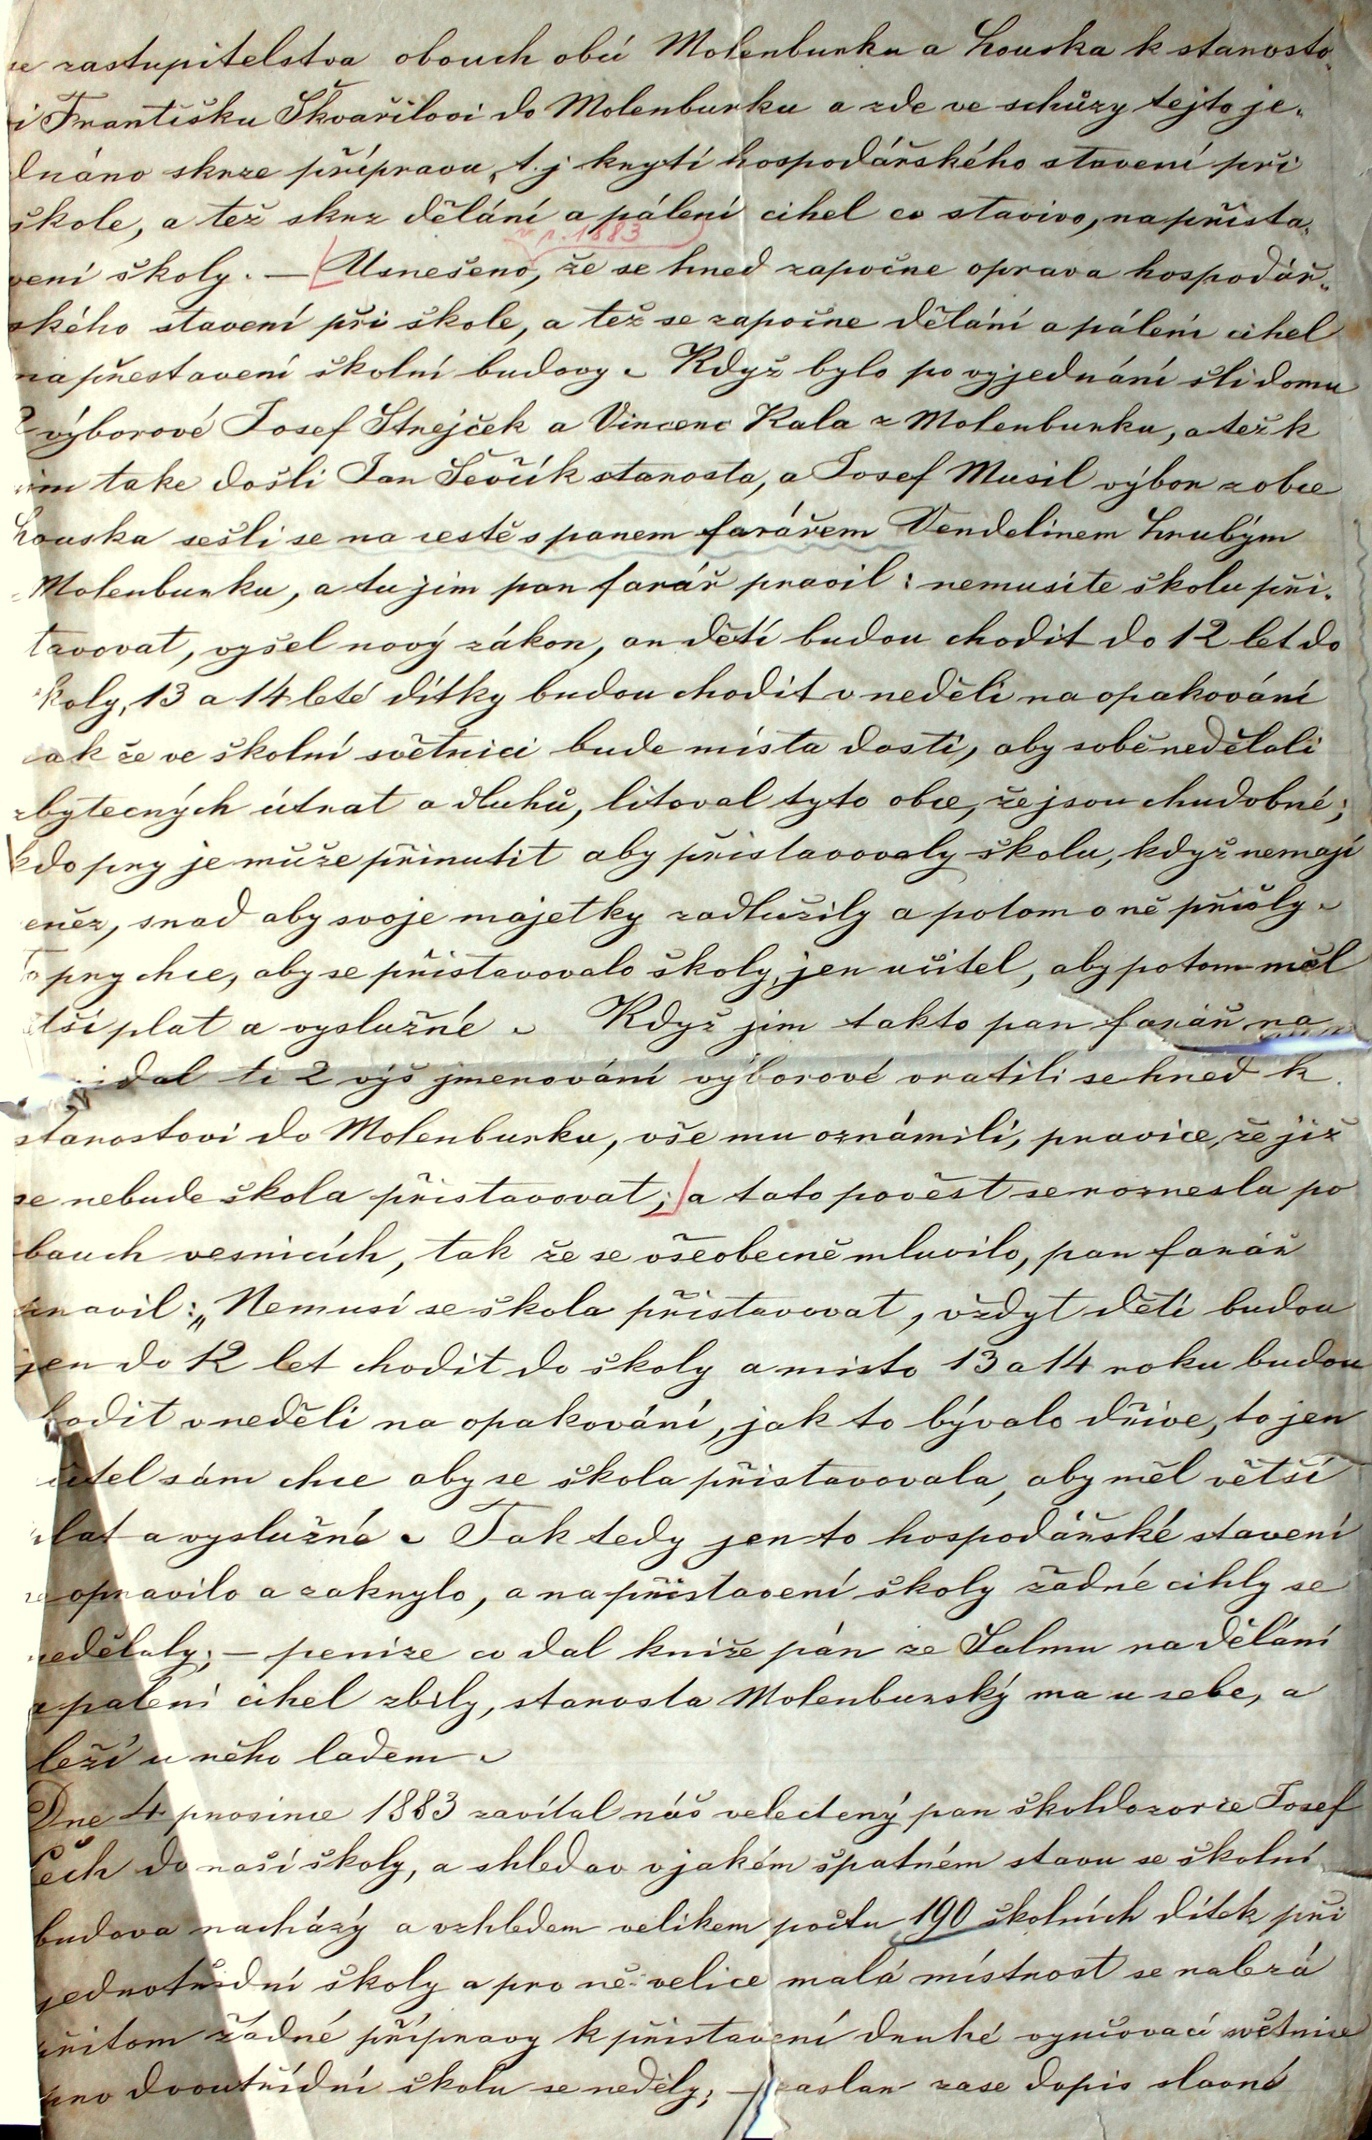 se zastupitelstva obouch obcí Molenburku a Houska k stanosto-
i Františku Škvařilovi do Molenburku a zde ve schůzy tejto je-
dnáno skrze přípravu, t.j krytí hospodářského stavení při
škole, a též skrz dělání a pálení cihel co stavivo, na přista-
r. 1883
vení školy. — Usnešeno, že se hned započne oprava hospodář-
ského stavení při škole, a též se započne dělání a pálení cihel
na přestavení školní budovy. Když bylo po vyjednání šli domu
2 výborové Josef Strejček a Vincenc Kala z Molenburku, a též k
nim take došli Jan Ševčík stanosta, a Josef Musil výbor z obce
Houska sešli se na cestě s panem farářem Vendelinem Hrubým
Molenburku, a tu jim pan farář pravil: nemusíte školu při-
stavovat, vyšel nový zákon, on dětí budou chodit do 12 let do
školy, 13 a 14 leté dítky budou chodit v neděli na opakování
tak že ve školní světnici bude místa dosti, aby sobě nedělali
zbytecných útrat a dluhů, litoval tyto obce, že jsou chudobné;
kdo pry je může přinutit aby přistavovaly školu, když nemají
peněz, snad aby svoje majetky zadlužily a potom o ně přišly.
To pry chce, aby se přistavovalo školy, jen učitel, aby potom měl
větší plat a vyslužné. Když jim takto pan farář na
ti 2 výš jmenování výborové vratili se hned k
stanostovi do Molenburku, vše mu oznámili, pravice, že již
se nebude škola přistavovat; a tato pověst se roznesla po
obouch vesnicích, tak že se všeobecně mluvilo, pan farář
pravil: „Nemusí se škola přistavovat, vždyt děti budou
jen do 12 let chodit do školy a misto 13 a 14 roku budou
chodit v neděli na opakování, jak to bývalo dříve, to jen
učitel sám chce aby se škola přistavovala, aby měl větší
plat a vyslužné. Tak tedy jen to hospodářské stavení
se opravilo a zakrylo, a na přistavení školy žadné cihly se
nedělaly; — penize co dal kniže pán ze Salmu na dělání
a palení cihel zbily, stanosta Molenburský ma u sebe, a
leží u něho ladem.
Dne 4 prosince 1883 zavítal náš velectený pan škohldozorce Josef
Čech do naší školy, a shledav v jakém špatném stavu se školní
budova nacházý a vzhledem velikem počtu 190 školních dítek při
jednotřídní školy a pro ně velice malá místnost se nalezá
přitom žádné přípravy k přistavení druhé vyučovací světnice
pro dvoutřídní školu se neděly; — zaslan zase dopis slavné